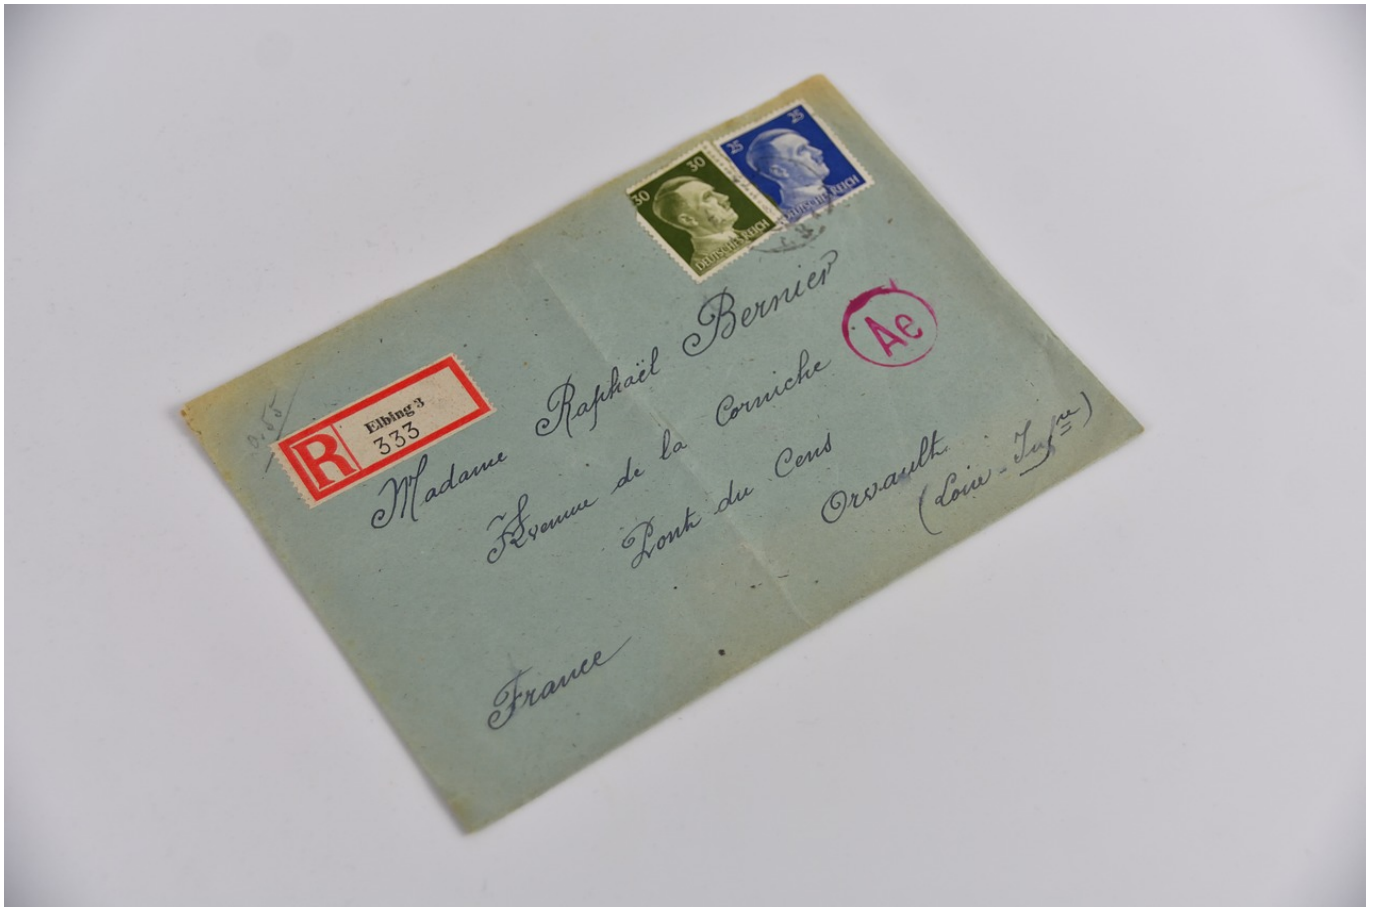 25 25
DEUTSCHES REICH
30 30
DEUTSCHES REICH
Ae
0,55
R
Elbing 3
333
Madame Raphaël Bernier
Avenue de la Corniche
Pont du Cens
Orvault
(Loire-Infre)
France